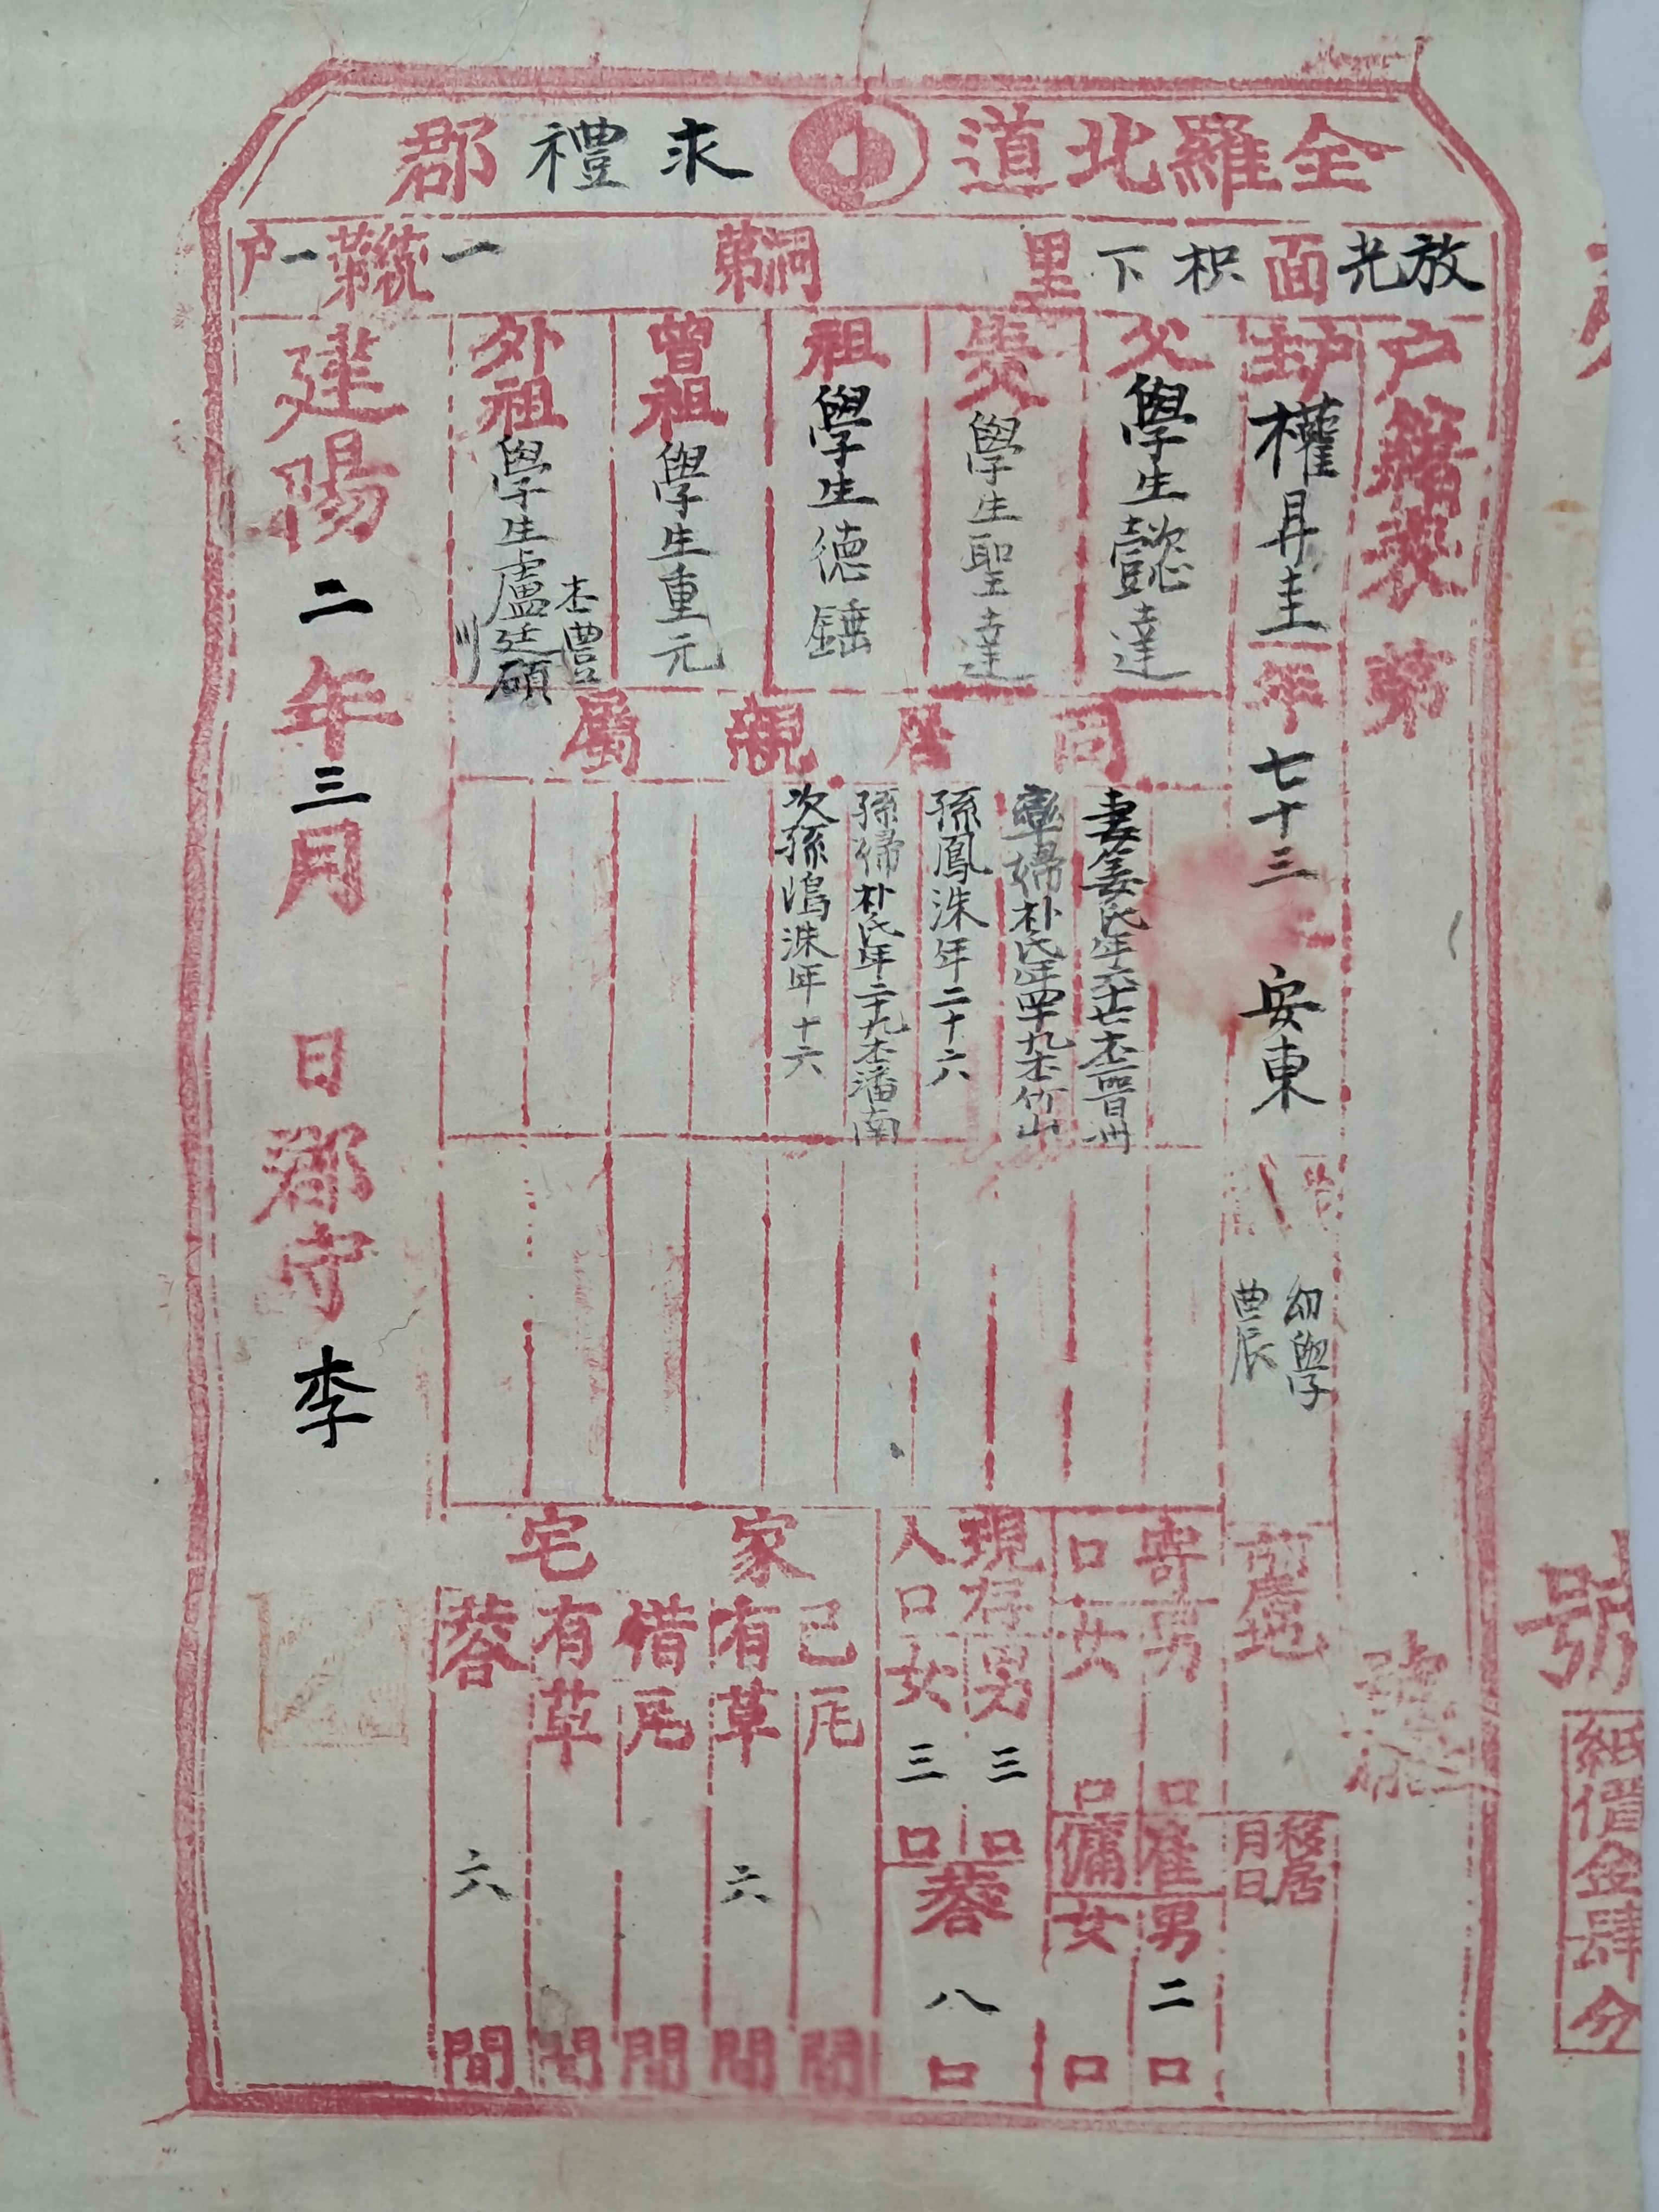 全羅北道 求禮郡
放光面 枳下里 洞第 一統第一戶
戶籍表 第 號
戶主 權冄圭 年七十三 本 安東
幼學
農
前居地
移居
月日
父 學生懿達
生父 學生聖達
祖 學生德錘
曾祖 學生重元
外祖 學生盧廷碩 本豊川
同居親屬
妻姜氏年六十七本晋州
婦朴氏年四十九本竹山
孫鳳洙年二十六
孫婦朴氏年二十九本潘南
次孫洙年十六
寄口 男 口 女 口
雇傭 男二口 女 口
現存人口 男三口 女三口
共八口
家宅
己有 瓦 間
草 六 間
借有 瓦 間
草 間
共 六 間
建陽二年三月 日 郡守 李
號
紙價金肆分